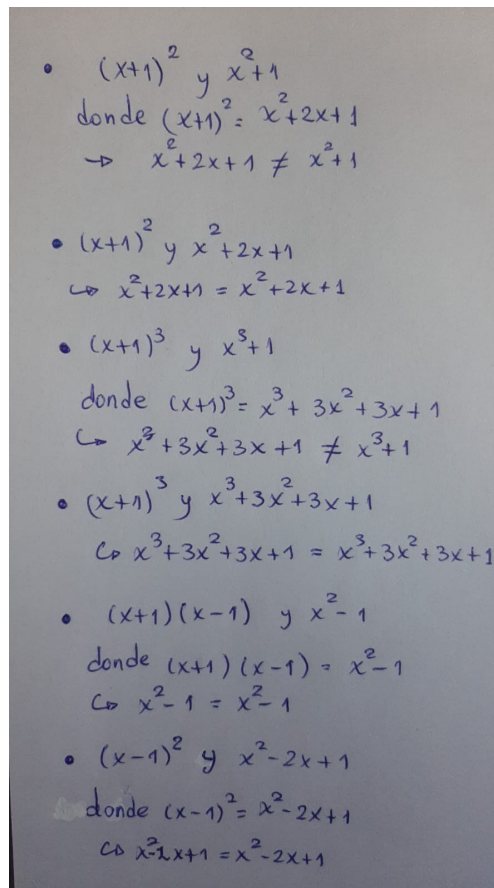 • (x+1)² y x²+1
donde (x+1)² = x²+2x+1
→ x²+2x+1 ≠ x²+1
• (x+1)² y x²+2x+1
↪ x²+2x+1 = x²+2x+1
• (x+1)³ y x³+1
donde (x+1)³ = x³ + 3x²+3x+1
↪ x³+3x²+3x+1 ≠ x³+1
• (x+1)³ y x³+3x²+3x+1
↪ x³+3x²+3x+1 = x³+3x²+3x+1
• (x+1)(x-1) y x²-1
donde (x+1)(x-1) = x²-1
↪ x²-1 = x²-1
• (x-1)² y x²-2x+1
donde (x-1)² = x²-2x+1
↪ x²-2x+1 = x²-2x+1